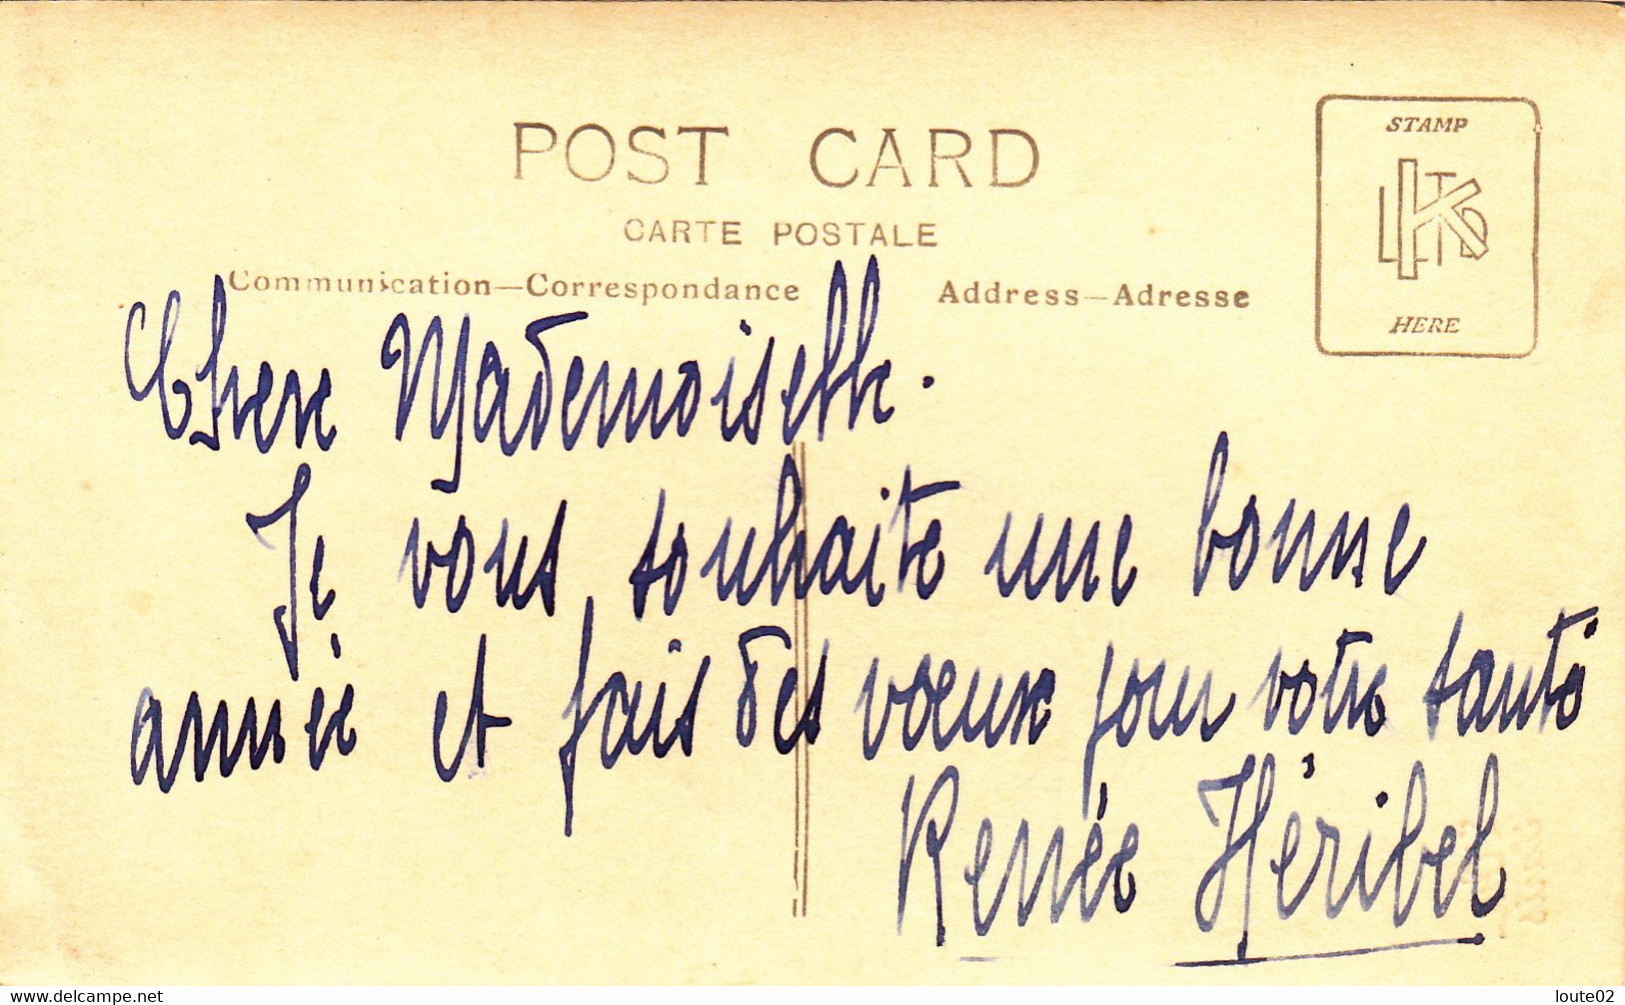 POST CARD
STAMP
K LTD
HERE
CARTE POSTALE
Communication—Correspondance
Address—Adresse
Chere Mademoiselle.
Je vous souhaite une bonne
année et fais des vœux pour votre santé
Renée Héribel
delcampe.net
loute02